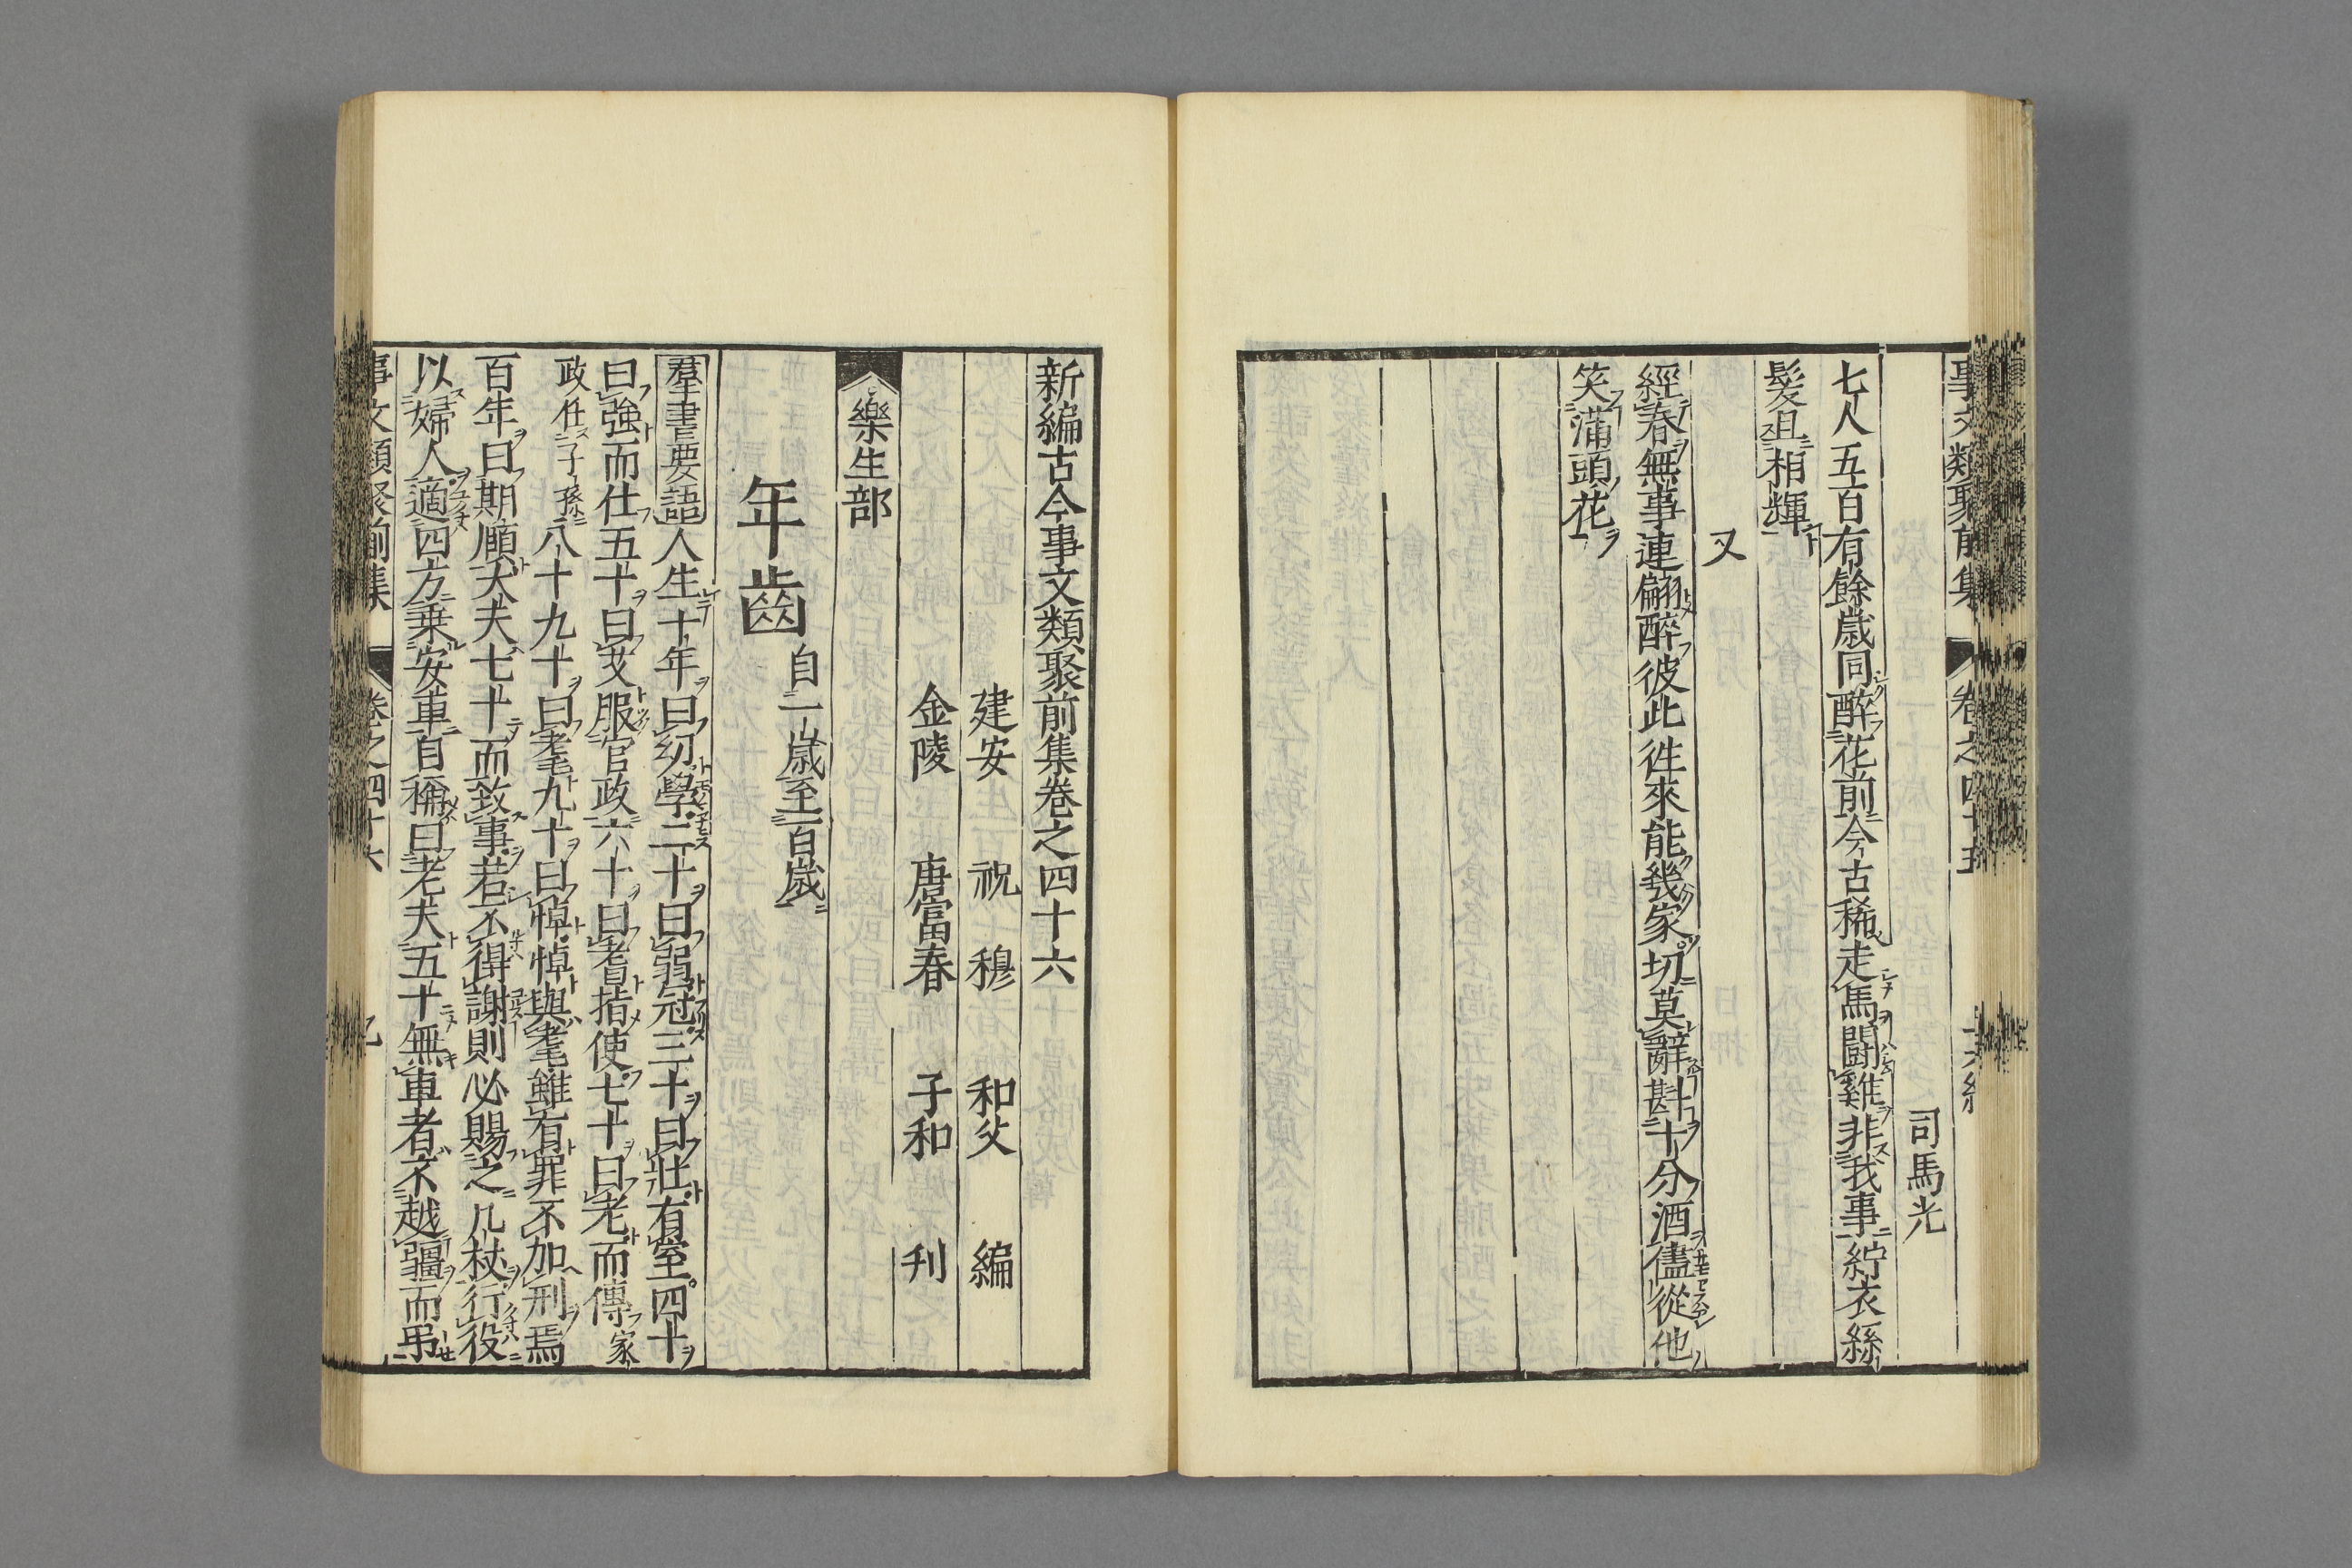 司馬光
七人五百有餘歳同醉花前今古稀走馬鬪雞非我事紵衣絲
髮且相輝
又
經春無事連翩醉彼此徃來能幾家切莫辭斟十分酒儘從他
笑滿頭花
新編古今事文類聚前集卷之四十六
建安 祝 穆 和父 編
金陵 唐富春 子和 刋
樂生部
年齒 自二歳至百歳
羣書要語人生十年曰幼學二十曰弱冠三十曰壯有室四十
曰強而仕五十曰艾服官政六十曰耆指使七十曰老而傳家
政仕子孫八十九十曰耄九十曰悼悼與耄雖有罪不加刑焉
百年曰期頤大夫七十而致事若不得謝則必賜之几杖行役
以婦人適四方乗安車自稱曰老夫五十無車者不越疆而弔